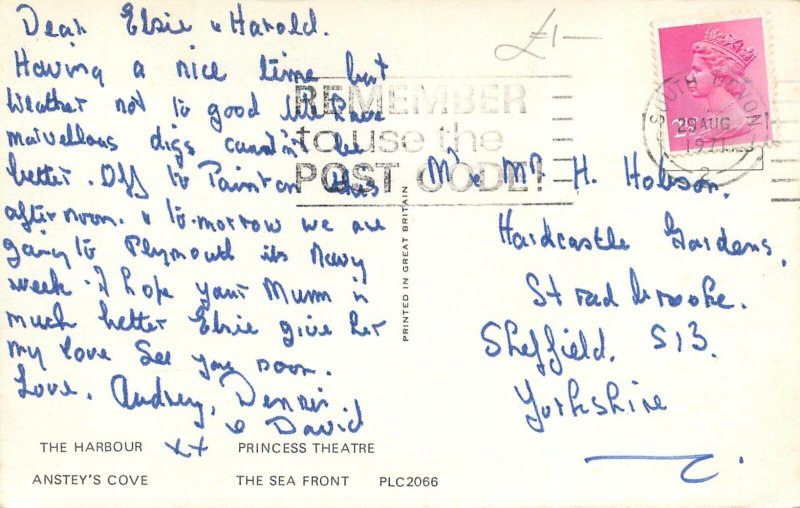 Dear Elsie & Harold.
Having a nice time but
weather not to good. We have
marvellous digs couldn't be
better. Off to Painton this
afternoon. & to-morrow we are
going to Plymouth its Navy
week. I hope your Mum is
much better Elsie give her
my love See you soon.
Love, Audrey, Dennis,
& David
xx
THE HARBOUR PRINCESS THEATRE
ANSTEY'S COVE THE SEA FRONT PLC2066
PRINTED IN GREAT BRITAIN
£1-
REMEMBER
to use the
POST CODE!
SOUTH DEVON
29 AUG
1971
2
Mr & Mrs H. Hobson.
Hardcastle Gardens,
Stradbrooke.
Sheffield. S13.
Yorkshire